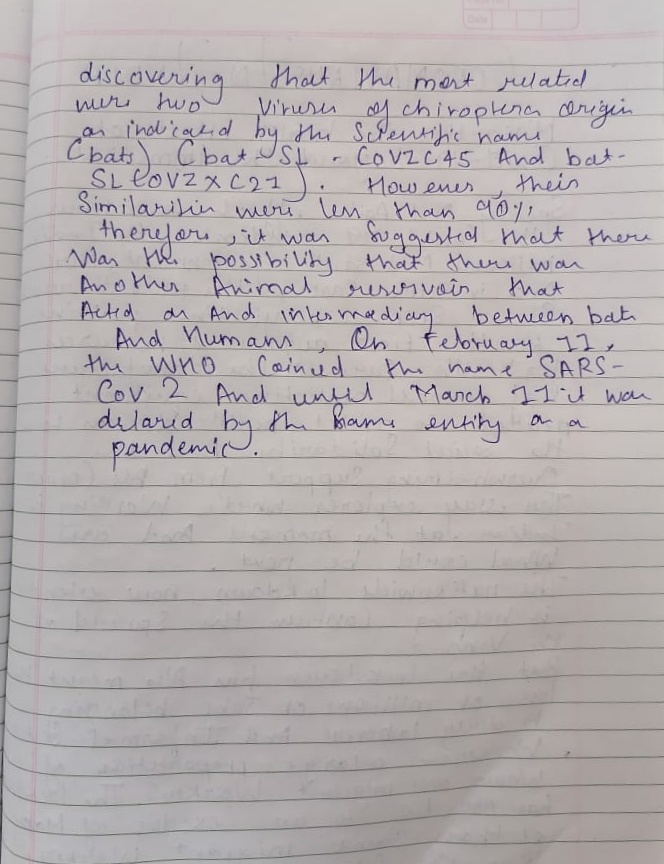 discovering that the most related
were two Viruses of chiroptera origin
as indicated by the Scientific name
(bats) (bat-SL - CoVZC45 And bat-
SL CoVZXC21). However, their
Similaritin were less than 90%
therefore, it was Suggested that there
Was the possibility that there was
Another Animal reservoir that
Acted as And intermediary between bats
And Humans, On February 11,
the WHO Coined the name SARS-
Cov 2 And until March 11 it was
delared by the Same entity as a
pandemic.